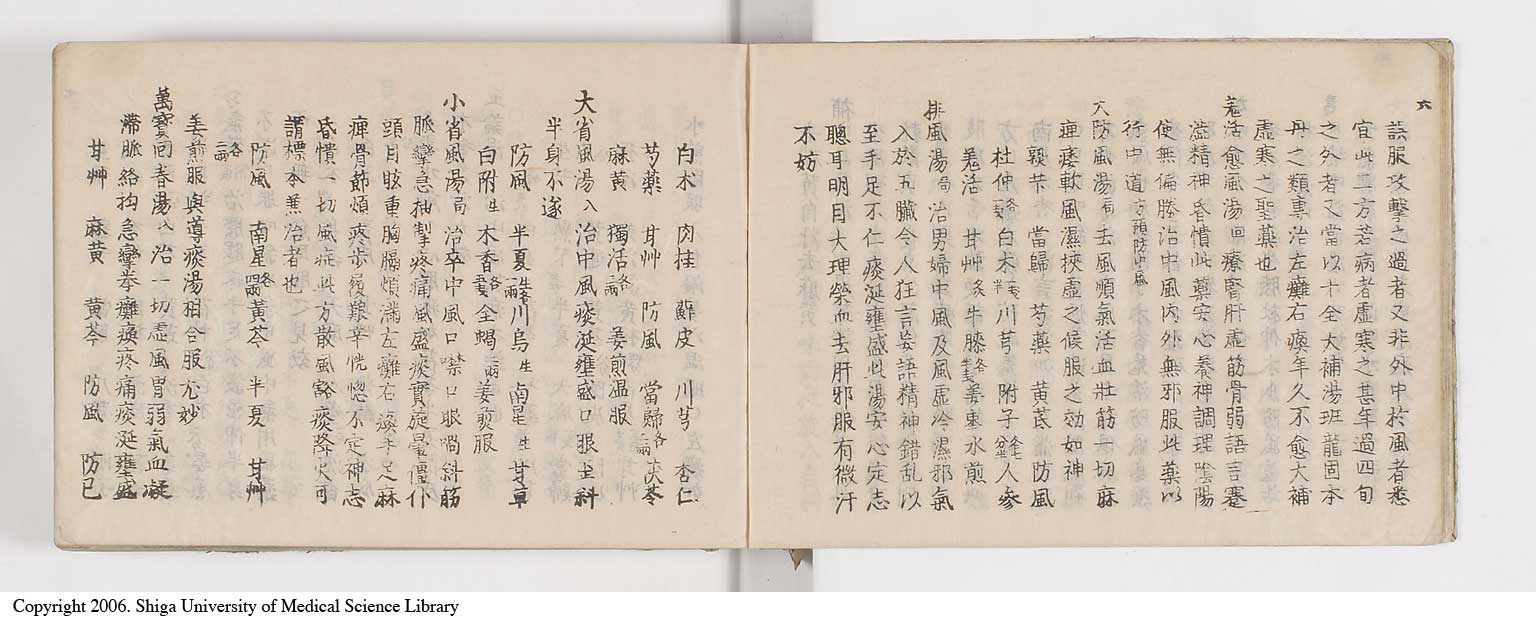 六
誤服攻撃之過者又非外中於風者悉
宜此二方若病者虚寒之甚年過四旬
之外者又當以十全大補湯班龍固本
丹之類専治左癱右瘓年久不愈大補
虚寒之聖藥也
羗活愈風湯回療腎肝虚筋骨弱語言蹇
澁精神昏憒此藥安心養神調理陰陽
使無偏勝治中風内外無邪服此藥以
行中道
大防風湯局去風順氣活血壯筋骨切麻
痺痿軟風濕挾虚之候服之効如神
當歸 芍藥 黄芪 防風
杜仲 白朮 川芎 附子 人參
羗活 甘艸炙 牛膝 姜棗水煎
排風湯局 治男婦中風及風虚冷濕邪氣
入於五臓令人狂言妄語精神錯乱以
至手足不仁痰涎壅盛此湯安心定志
聰耳明目大理榮血去肝邪服有微汗
不妨
白朮 肉桂 川芎 杏仁
芍藥 甘艸 防風 當歸各 茯苓
麻黄 獨活各 姜煎温服
大省風湯入 治中風痰涎壅盛口眼㖞斜
半身不遂
防風 半夏 川烏生 南星生 甘草
白附生 木香 全蝎 姜煎服
小省風湯局 治卒中風口噤口眼㖞斜筋
脈攣急抽掣疼痛風盛痰實旋暈僵仆
頭目眩重胸膈煩滿左癱右瘓手足麻
痺骨節煩疼歩履艱辛恍惚不定神志
昏憒一切風症此方散風豁痰降火可
謂標本兼治者也
防風 南星 黄芩 半夏 甘艸
姜煎服與導痰湯相合服尤妙
萬寳回春湯 治一切虚風胃弱氣血凝
滞脈絡拘急攣拳癱瘓疼痛痰涎壅盛
甘艸 麻黄 黄芩 防風 防已
Copyright 2006. Shiga University of Medical Science Library